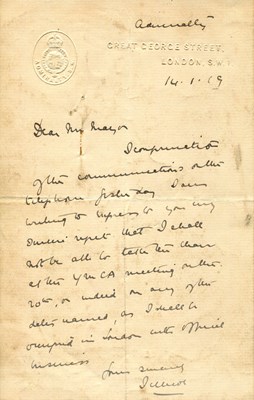 Admiralty
GREAT GEORGE STREET,
LONDON, S.W.
14.1.19
Dear Mr Mayor
In confirmation
of the communications on the
telephone yesterday I am
writing to express to you my
sincere regret that I shall
not be able to take the chair
at the YMCA meeting on the
20th, or indeed on any of the
dates named, as I shall be
occupied in London with official
business
Yours sincerely